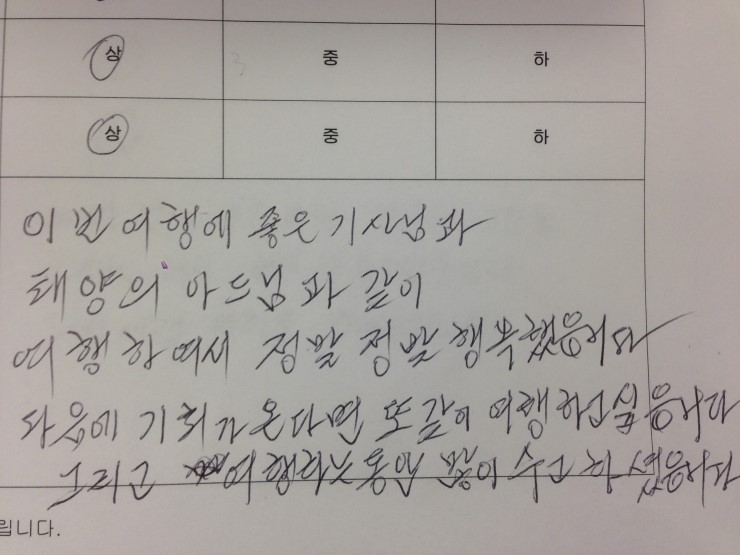 상 중 하
상 중 하
이번 여행에 좋은 기사님과
태양의 아드님과 같이
여행하여서 정말 정말 행복했읍니다
다음에 기회가 온다면 또 같이 여행하고 싶읍니다
그리고 여행하는 동안 많이 수고 하셨읍니다
립니다.